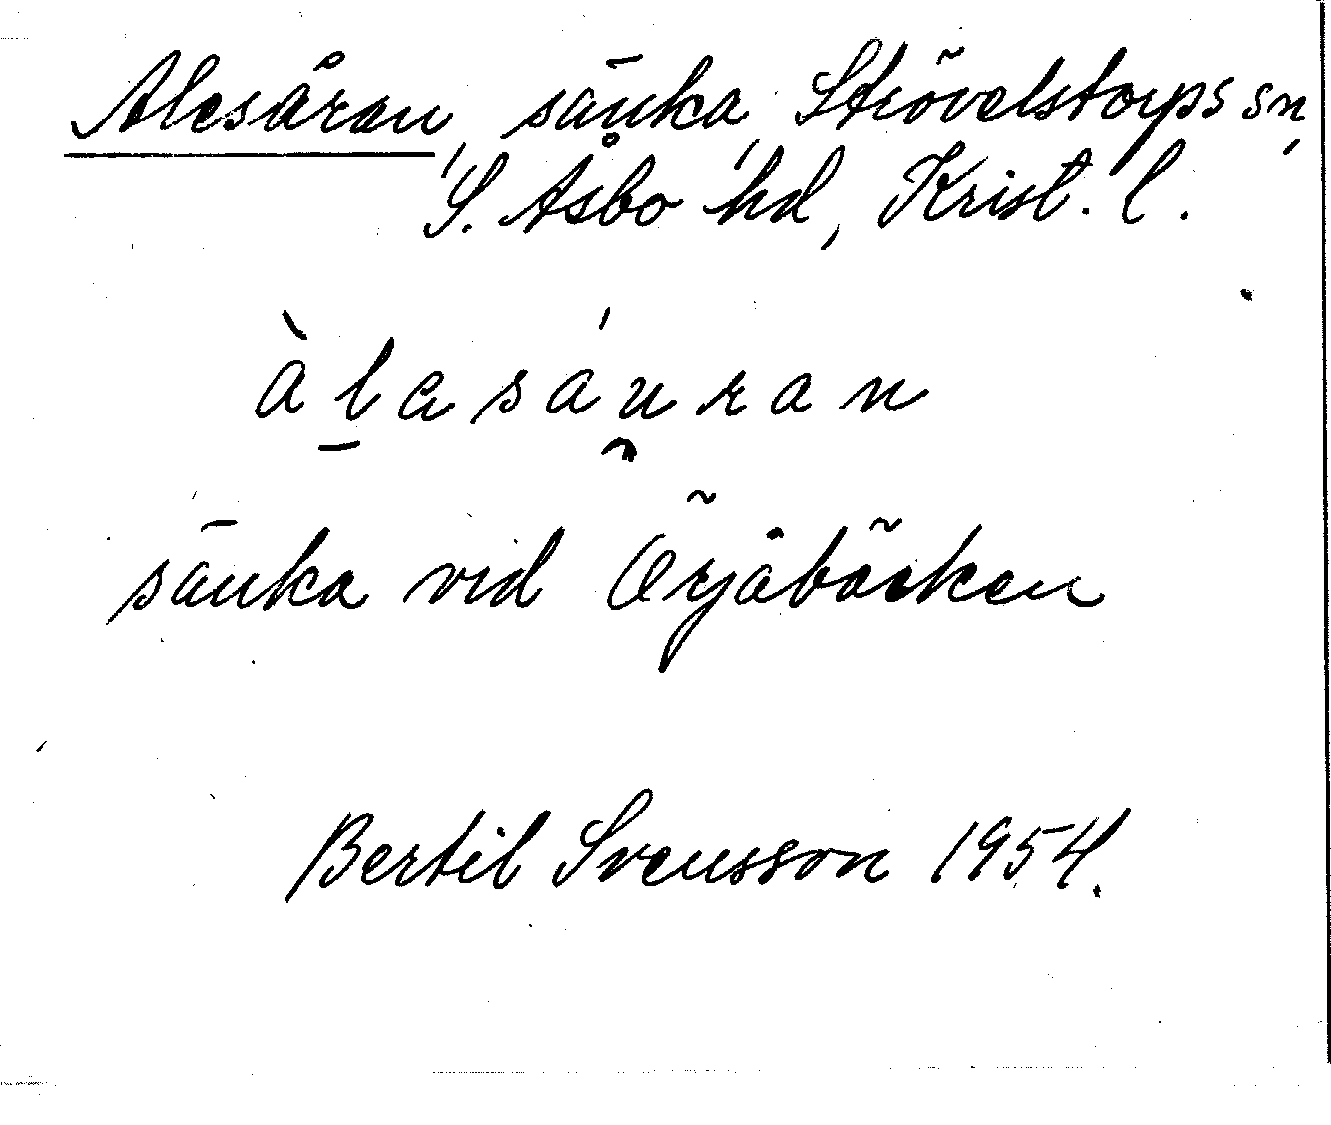 Alesåran, sänka, Strövelstorps sn,
S. Åsbo hd, Krist. l.
àl̲asáu̯ran
sänka vid Örjabäcken
Bertil Svensson 1954.